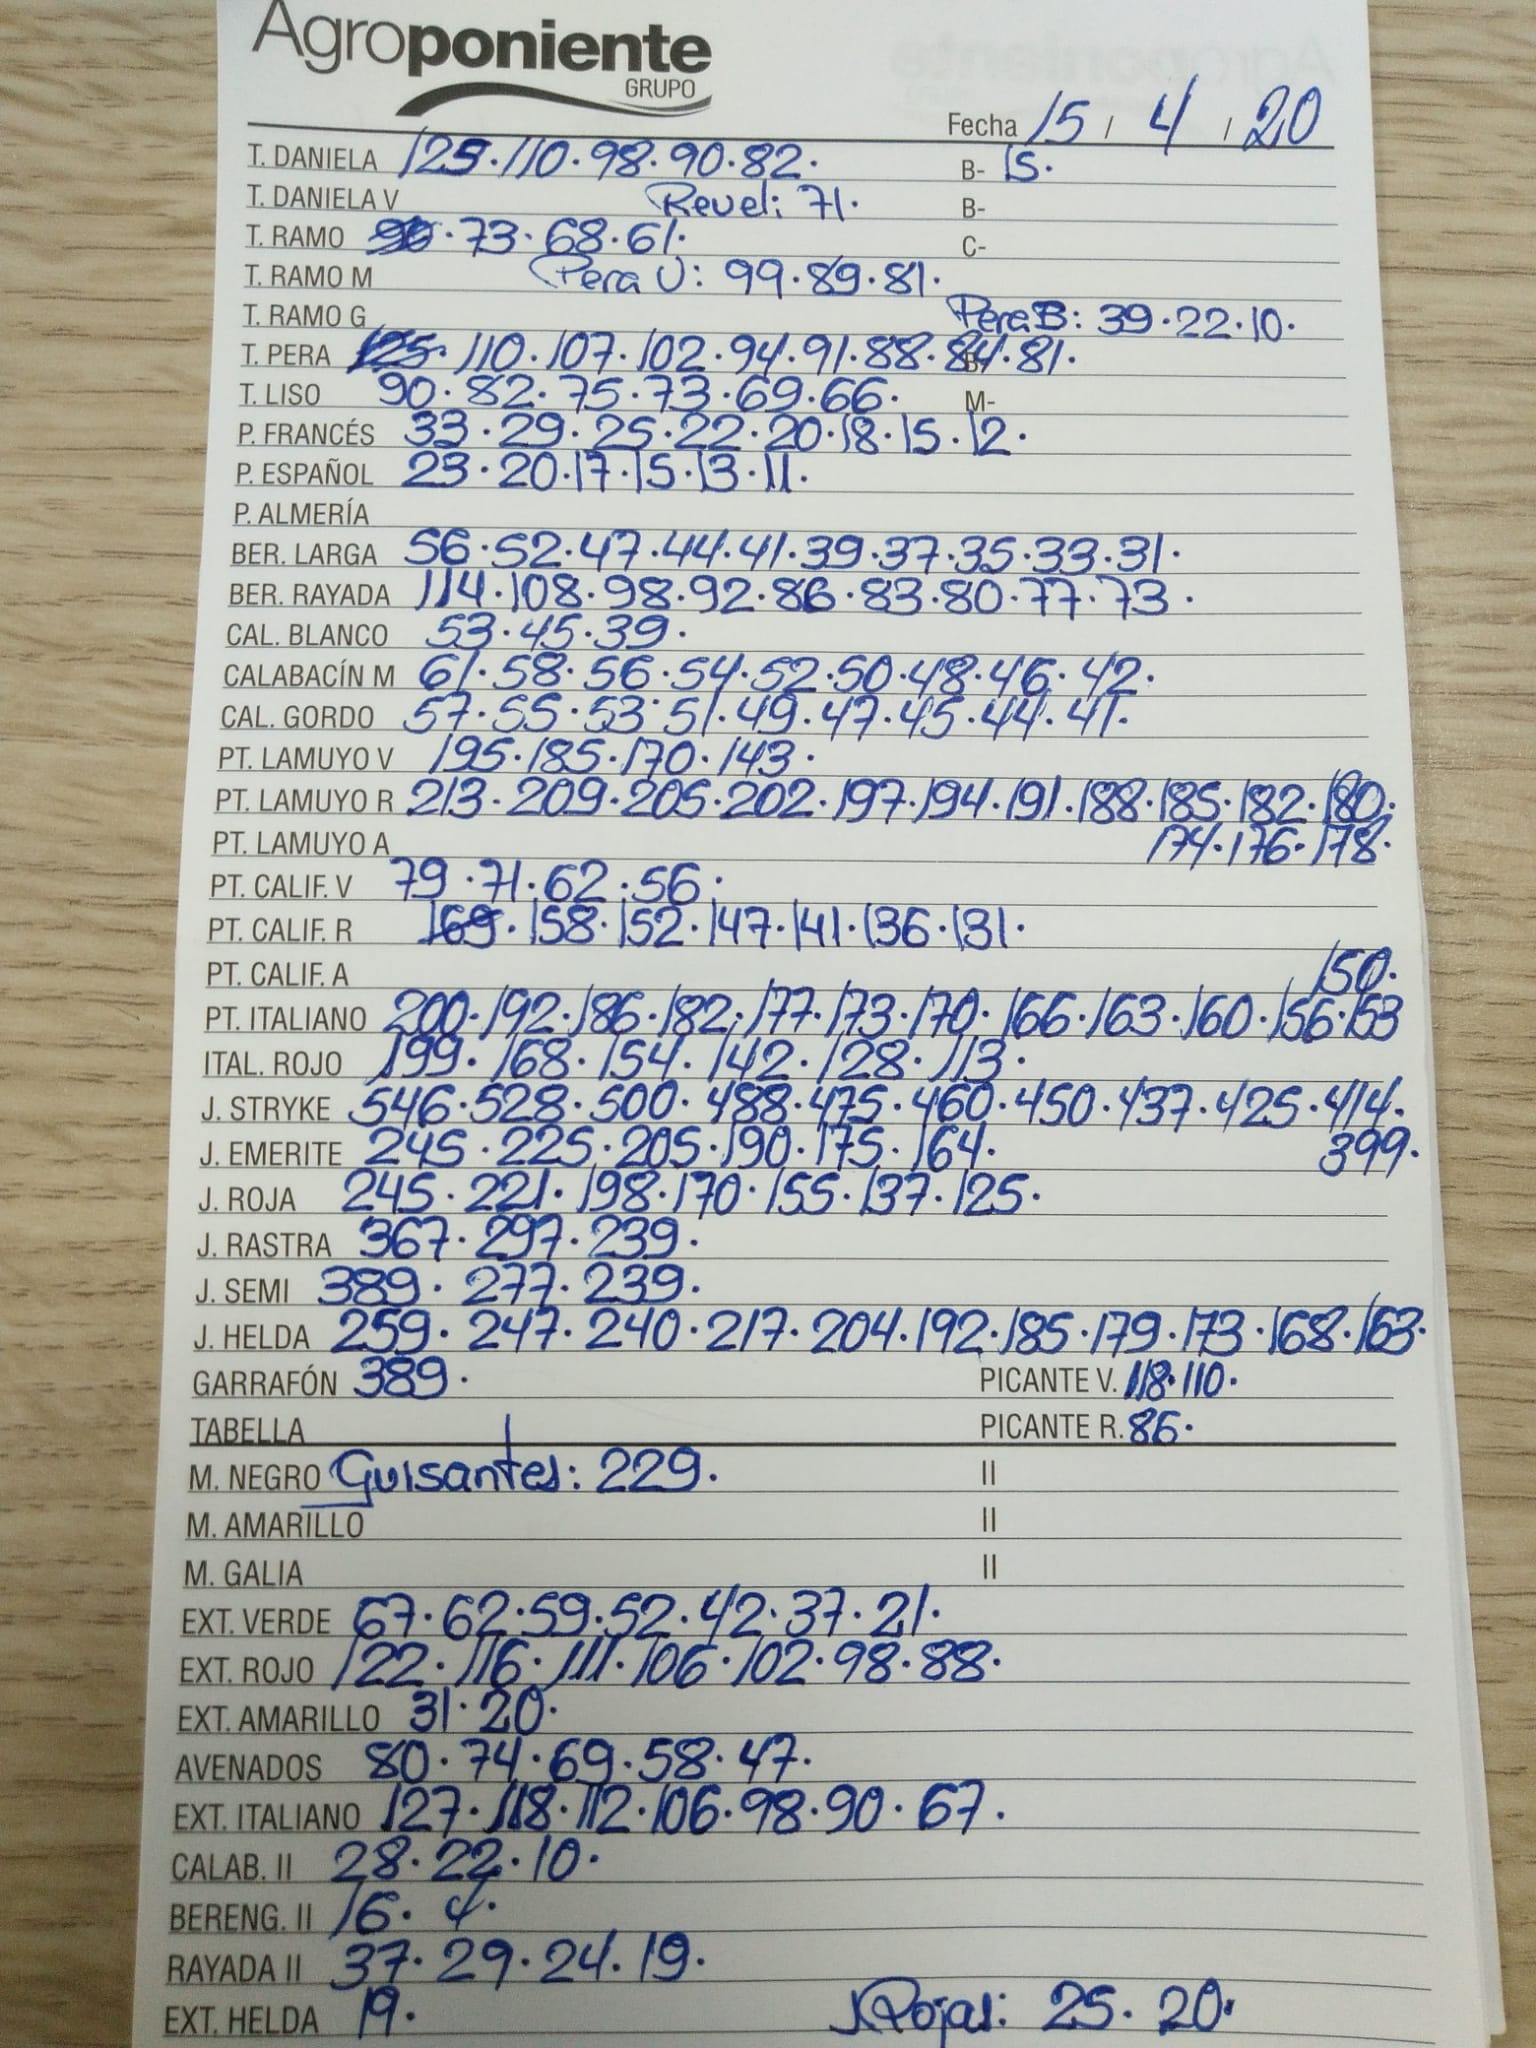 Agroponiente
GRUPO
Fecha 15 / 4 / 20
T. DANIELA 125·110·98·90·82· B- 15·
T. DANIELA V Revel: 71· B-
T. RAMO ·73·68·61· C-
T. RAMO M Pera V: 99·89·81·
T. RAMO G Pera B: 39·22·10·
T. PERA 125· 110·107·102·94·91·88·84·81·
T. LISO 90·82·75·73·69·66· M-
P. FRANCÉS 33·29·25·22·20·18·15·12·
P. ESPAÑOL 23·20·17·15·13·11·
P. ALMERÍA
BER. LARGA 56·52·47·44·41·39·37·35·33·31·
BER. RAYADA 114·108·98·92·86·83·80·77·73·
CAL. BLANCO 53·45·39·
CALABACÍN M 61·58·56·54·52·50·48·46·42·
CAL. GORDO 57·55·53·51·49·47·45·44·41·
PT. LAMUYO V 195·185·170·143·
PT. LAMUYO R 213·209·205·202·197·194·191·188·185·182·180·
PT. LAMUYO A 174·176·178·
PT. CALIF. V 79·71·62·56·
PT. CALIF. R 169·158·152·147·141·136·131·
PT. CALIF. A 150·
PT. ITALIANO 200·192·186·182·177·173·170·166·163·160·156·153
ITAL. ROJO 199·168·154·142·128·113·
J. STRYKE 546·528·500·488·475·460·450·437·425·414·
J. EMERITE 245·225·205·190·175·164· 399·
J. ROJA 245·221·198·170·155·137·125·
J. RASTRA 367·297·239·
J. SEMI 389·277·239·
J. HELDA 259·247·240·217·204·192·185·179·173·168·163·
GARRAFÓN 389· PICANTE V. 118·110·
TABELLA PICANTE R. 86·
M. NEGRO Guisantes: 229· II
M. AMARILLO II
M. GALIA II
EXT. VERDE 67·62·59·52·42·37·21·
EXT. ROJO 122·116·111·106·102·98·88·
EXT. AMARILLO 31·20·
AVENADOS 80·74·69·58·47·
EXT. ITALIANO 127·118·112·106·98·90·67·
CALAB. II 28·22·10·
BERENG. II 16·4·
RAYADA II 37·29·24·19·
EXT. HELDA 19· J Rojas: 25·20·